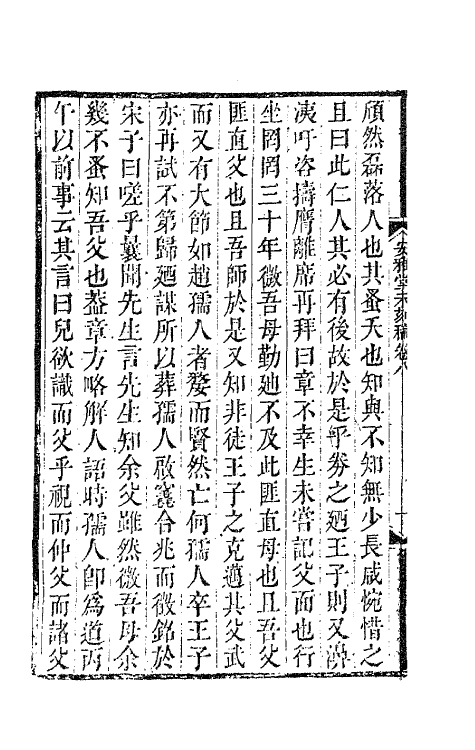 頎然磊落人也其蚤夭也知與不知無少長咸惋惜之
且曰此仁人其必有後故於是乎劵之廼王子則又湧
洟吁咨擣膺離席再拜曰章不幸生未嘗記父面也行
坐罔罔三十年微吾母勤廸不及此匪直母也且吾父
匪直父也且吾師於是又知非徒王子之克邁其父武
而又有大節如趙孺人者嫠而賢然亡何孺人卒王子
亦再試不第歸廼謀所以葬孺人啟窆合兆而徵銘於
宋子曰嗟乎曩聞先生言先生知余父雖然微吾母余
幾不蚤知吾父也葢章方略解人語時孺人卽爲道丙
午以前事云其言曰兒欲識而父乎視而仲父而諸父
安雅堂未刻稿卷八